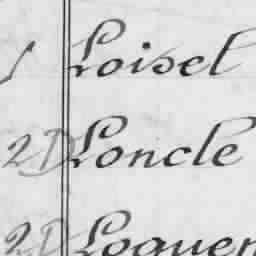 1 Loisel
2D Loncle
2D Loquen